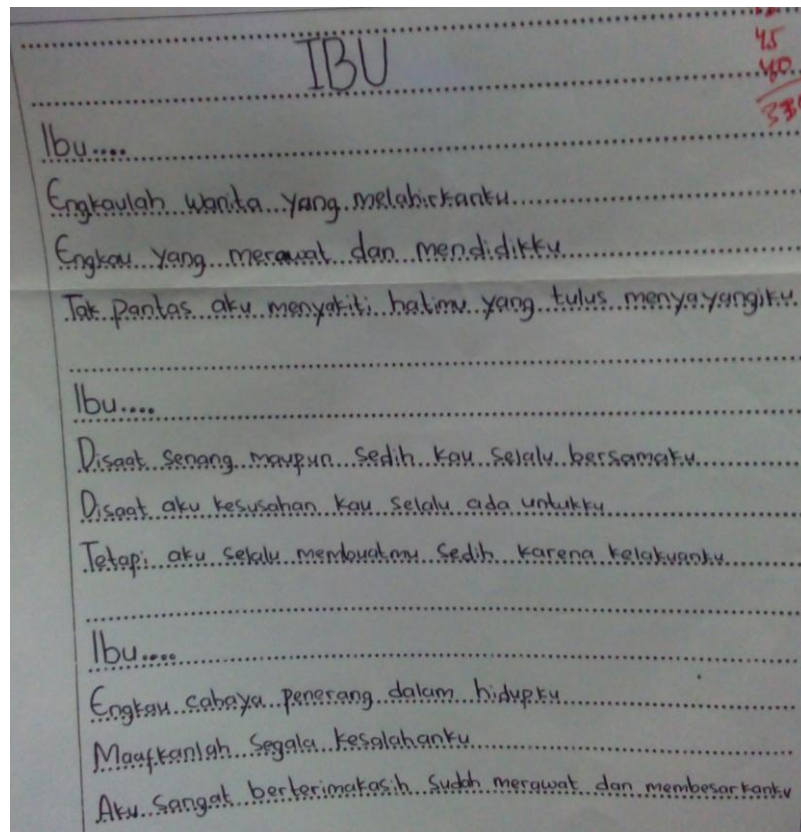 IBU
45
40
Ibu....
Engkaulah wanita yang melahirkanku
Engkau yang merawat dan mendidikku
Tak pantas aku menyakiti hatimu yang tulus menyayangiku.
Ibu....
Disaat senang maupun sedih kau selalu bersamaku
Disaat aku kesusahan kau selalu ada untukku
Tetapi aku selalu membuatmu sedih karena kelakuanku
Ibu....
Engkau cahaya penerang dalam hidupku
Maafkanlah segala kesalahanku
Aku sangat berterimakasih sudah merawat dan membesarkanku